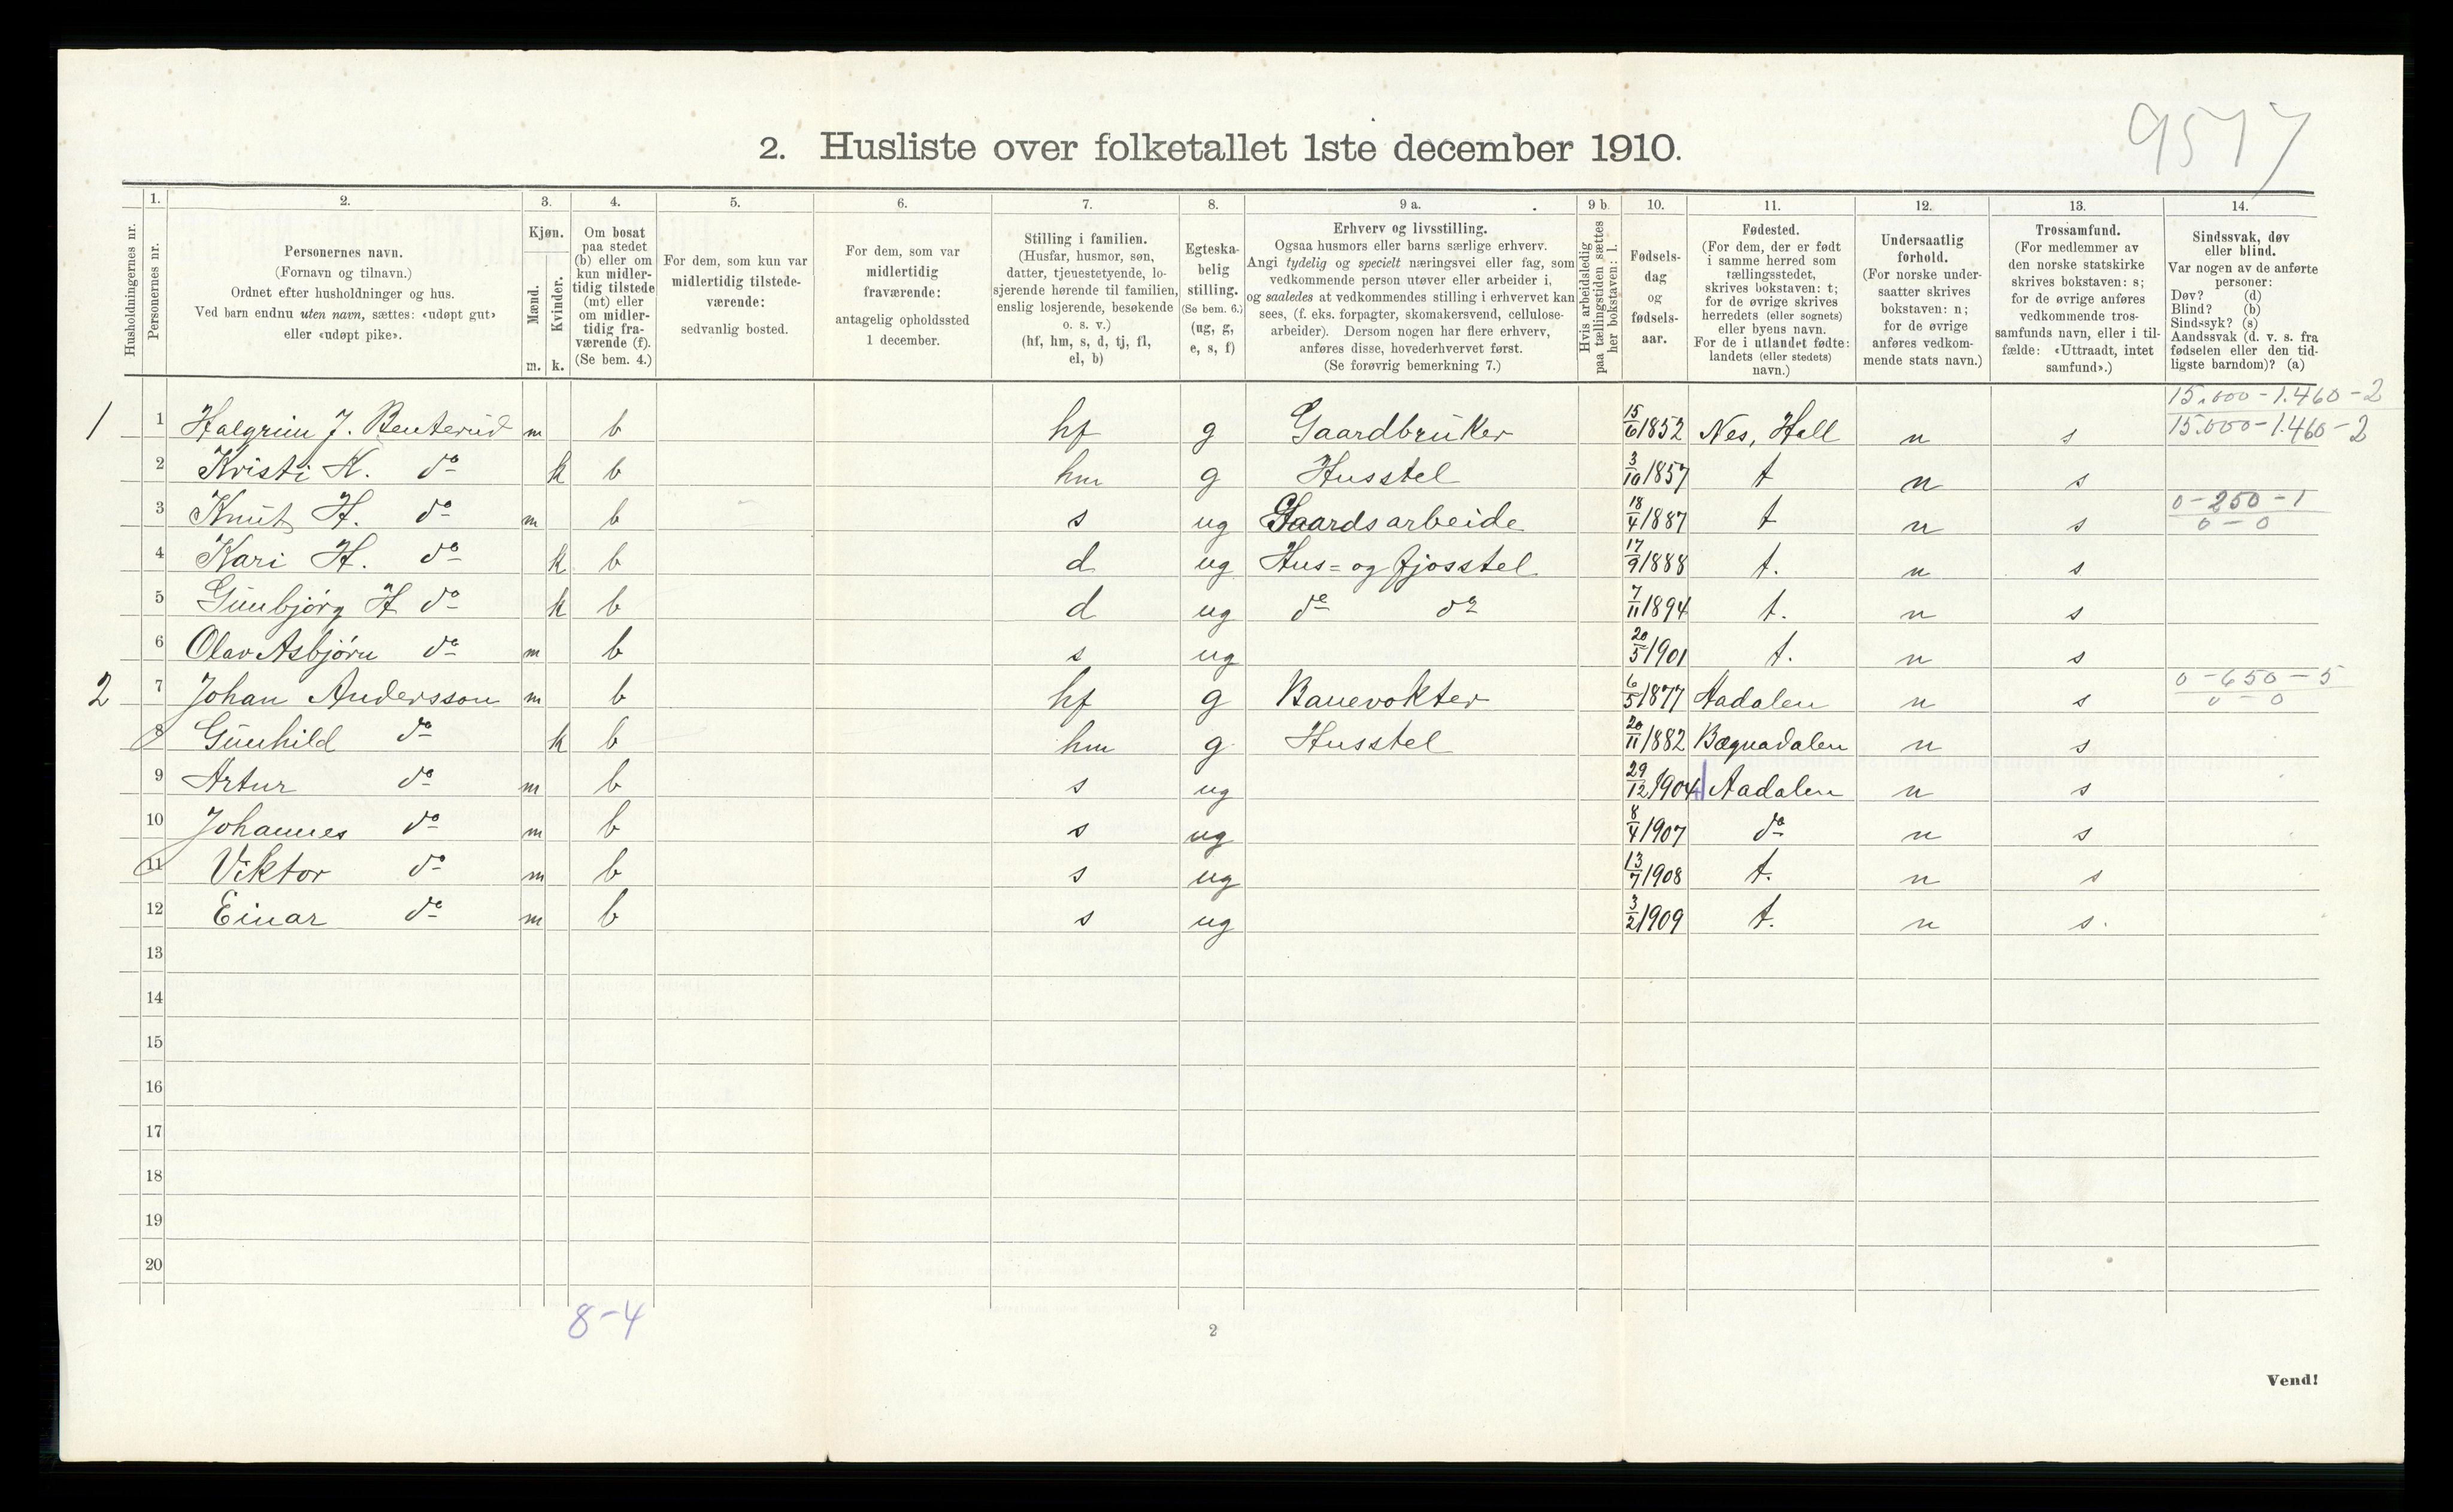 9577
2. Husliste over folketallet 1ste december 1910.
Husholdningernes nr.
1. Personernes nr.
2. Personernes navn. (Fornavn og tilnavn.) Ordnet efter husholdninger og hus. Ved barn endnu uten navn, sættes: «udøpt gut» eller «udøpt pike».
3. Kjøn. Mænd. m. Kvinder. k.
4. Om bosat paa stedet (b) eller om kun midler-tidig tilstede (mt) eller om midler-tidig fra-værende (f). (Se bem. 4.)
5. For dem, som kun var midlertidig tilstede-værende: sedvanlig bosted.
6. For dem, som var midlertidig fraværende: antagelig opholdssted 1 december.
7. Stilling i familien. (Husfar, husmor, søn, datter, tjenestetyende, lo-sjerende hørende til familien, enslig losjerende, besøkende o. s. v.) (hf, hm, s, d, tj, fl, el, b)
8. Egteska-belig stilling. (Se bem. 6.) (ug, g, e, s, f)
9 a. Erhverv og livsstilling. Ogsaa husmors eller barns særlige erhverv. Angi tydelig og specielt næringsvei eller fag, som vedkommende person utøver eller arbeider i, og saaledes at vedkommendes stilling i erhvervet kan sees, (f. eks. forpagter, skomakersvend, cellulose-arbeider). Dersom nogen har flere erhverv, anføres disse, hovederhvervet først. (Se forøvrig bemerkning 7.)
9 b. Hvis arbeidsledig paa tællingstiden sættes her bokstaven: l.
10. Fødsels-dag og fødsels-aar.
11. Fødested. (For dem, der er født i samme herred som tællingsstedet, skrives bokstaven: t; for de øvrige skrives herredets (eller sognets) eller byens navn. For de i utlandet fødte: landets (eller stedets) navn.)
12. Undersaatlig forhold. (For norske under-saatter skrives bokstaven: n; for de øvrige anføres vedkom-mende stats navn.)
13. Trossamfund. (For medlemmer av den norske statskirke skrives bokstaven: s; for de øvrige anføres vedkommende tros-samfunds navn, eller i til-fælde: «Uttraadt, intet samfund».)
14. Sindssvak, døv eller blind. Var nogen av de anførte personer: Døv? (d) Blind? (b) Sindssyk? (s) Aandssvak (d. v. s. fra fødselen eller den tid-ligste barndom)? (a)
15.000-1.460-2
1 1 Halgrim J. Benterud m b hf g Gaardbruker 15/6 1852 Nes, Hall n s 15.000-1.460-2
2 Kristi K. do k b hm g Husstel 3/10 1857 t n s
3 Knut H. do m b s ug Gaardsarbeide 18/4 1887 t n s 0-250-1 0-0
4 Kari H. do k b d ug Hus= og fjosstel 17/9 1888 t. n s
5 Gunbjørg H do k b d ug do do 7/11 1894 t. n s
6 Olav Asbjørn do m b s ug 20/5 1901 t. n s
2 7 Johan Andersson m b hf g Banevokter 6/5 1877 Aadalen n s 0-650-5 0-0
8 Gunhild do k b hm g Husstel 20/11 1882 Bægnadalen n s
9 Artur do m b s ug 29/12 1904 Aadalen n s
10 Johannes do m b s ug 8/4 1907 do n s
11 Viktor do m b s ug 13/7 1908 t. n s
12 Einar do m b s ug 3/2 1909 t. n s.
13
14
15
16
17
18
19
20
8-4
2
Vend!